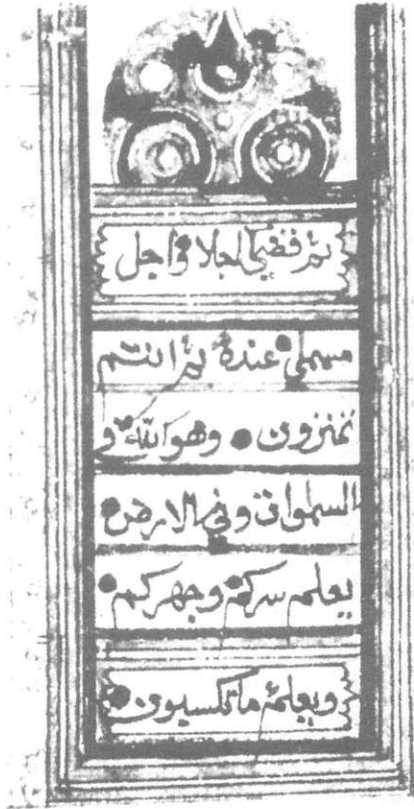 ثم قضى اجلا واجل
مسمى عنده ثم انتم
تمترون وهو الله و
السموات وفي الارض
يعلم سركم وجهركم
ويعلم ما تكسبون